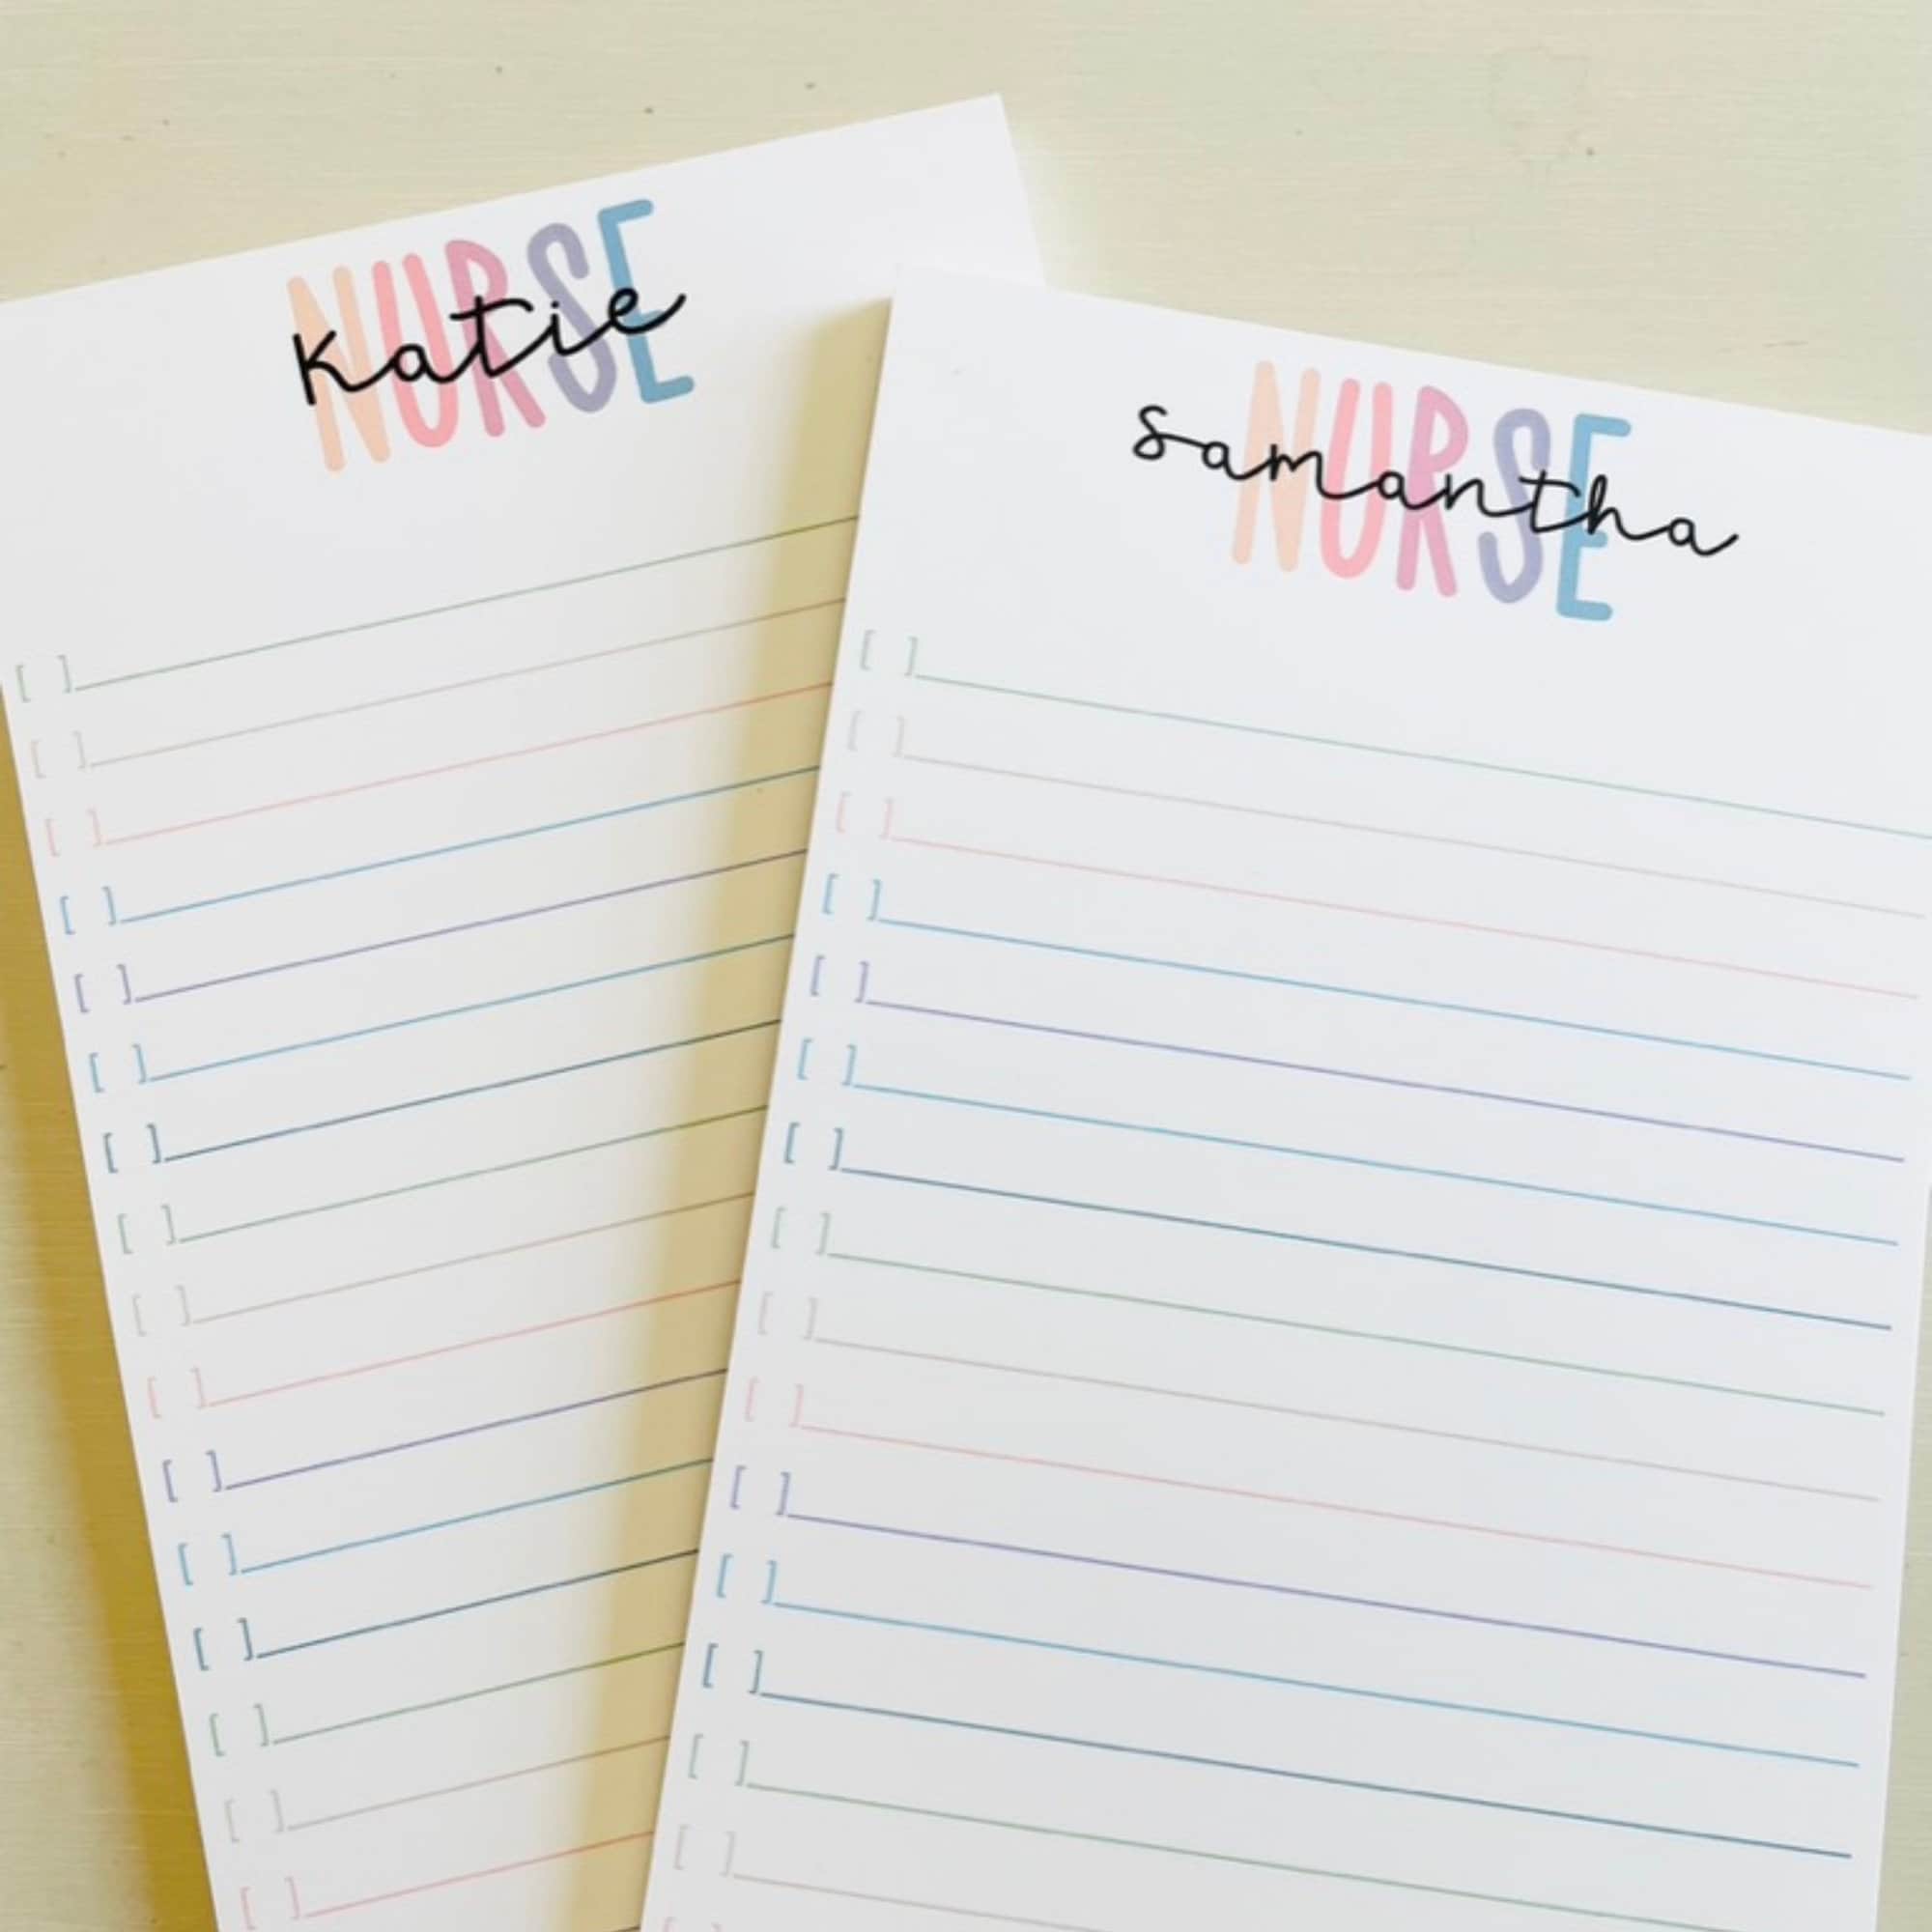 NURSE
Katie
NURSE
samantha
[ ]
[ ]
[ ]
[ ]
[ ]
[ ]
[ ]
[ ]
[ ]
[ ]
[ ]
[ ]
[ ]
[ ]
[ ]
[ ]
[ ]
[ ]
[ ]
[ ]
[ ]
[ ]
[ ]
[ ]
[ ]
[ ]
[ ]
[ ]
[ ]
[ ]
[ ]